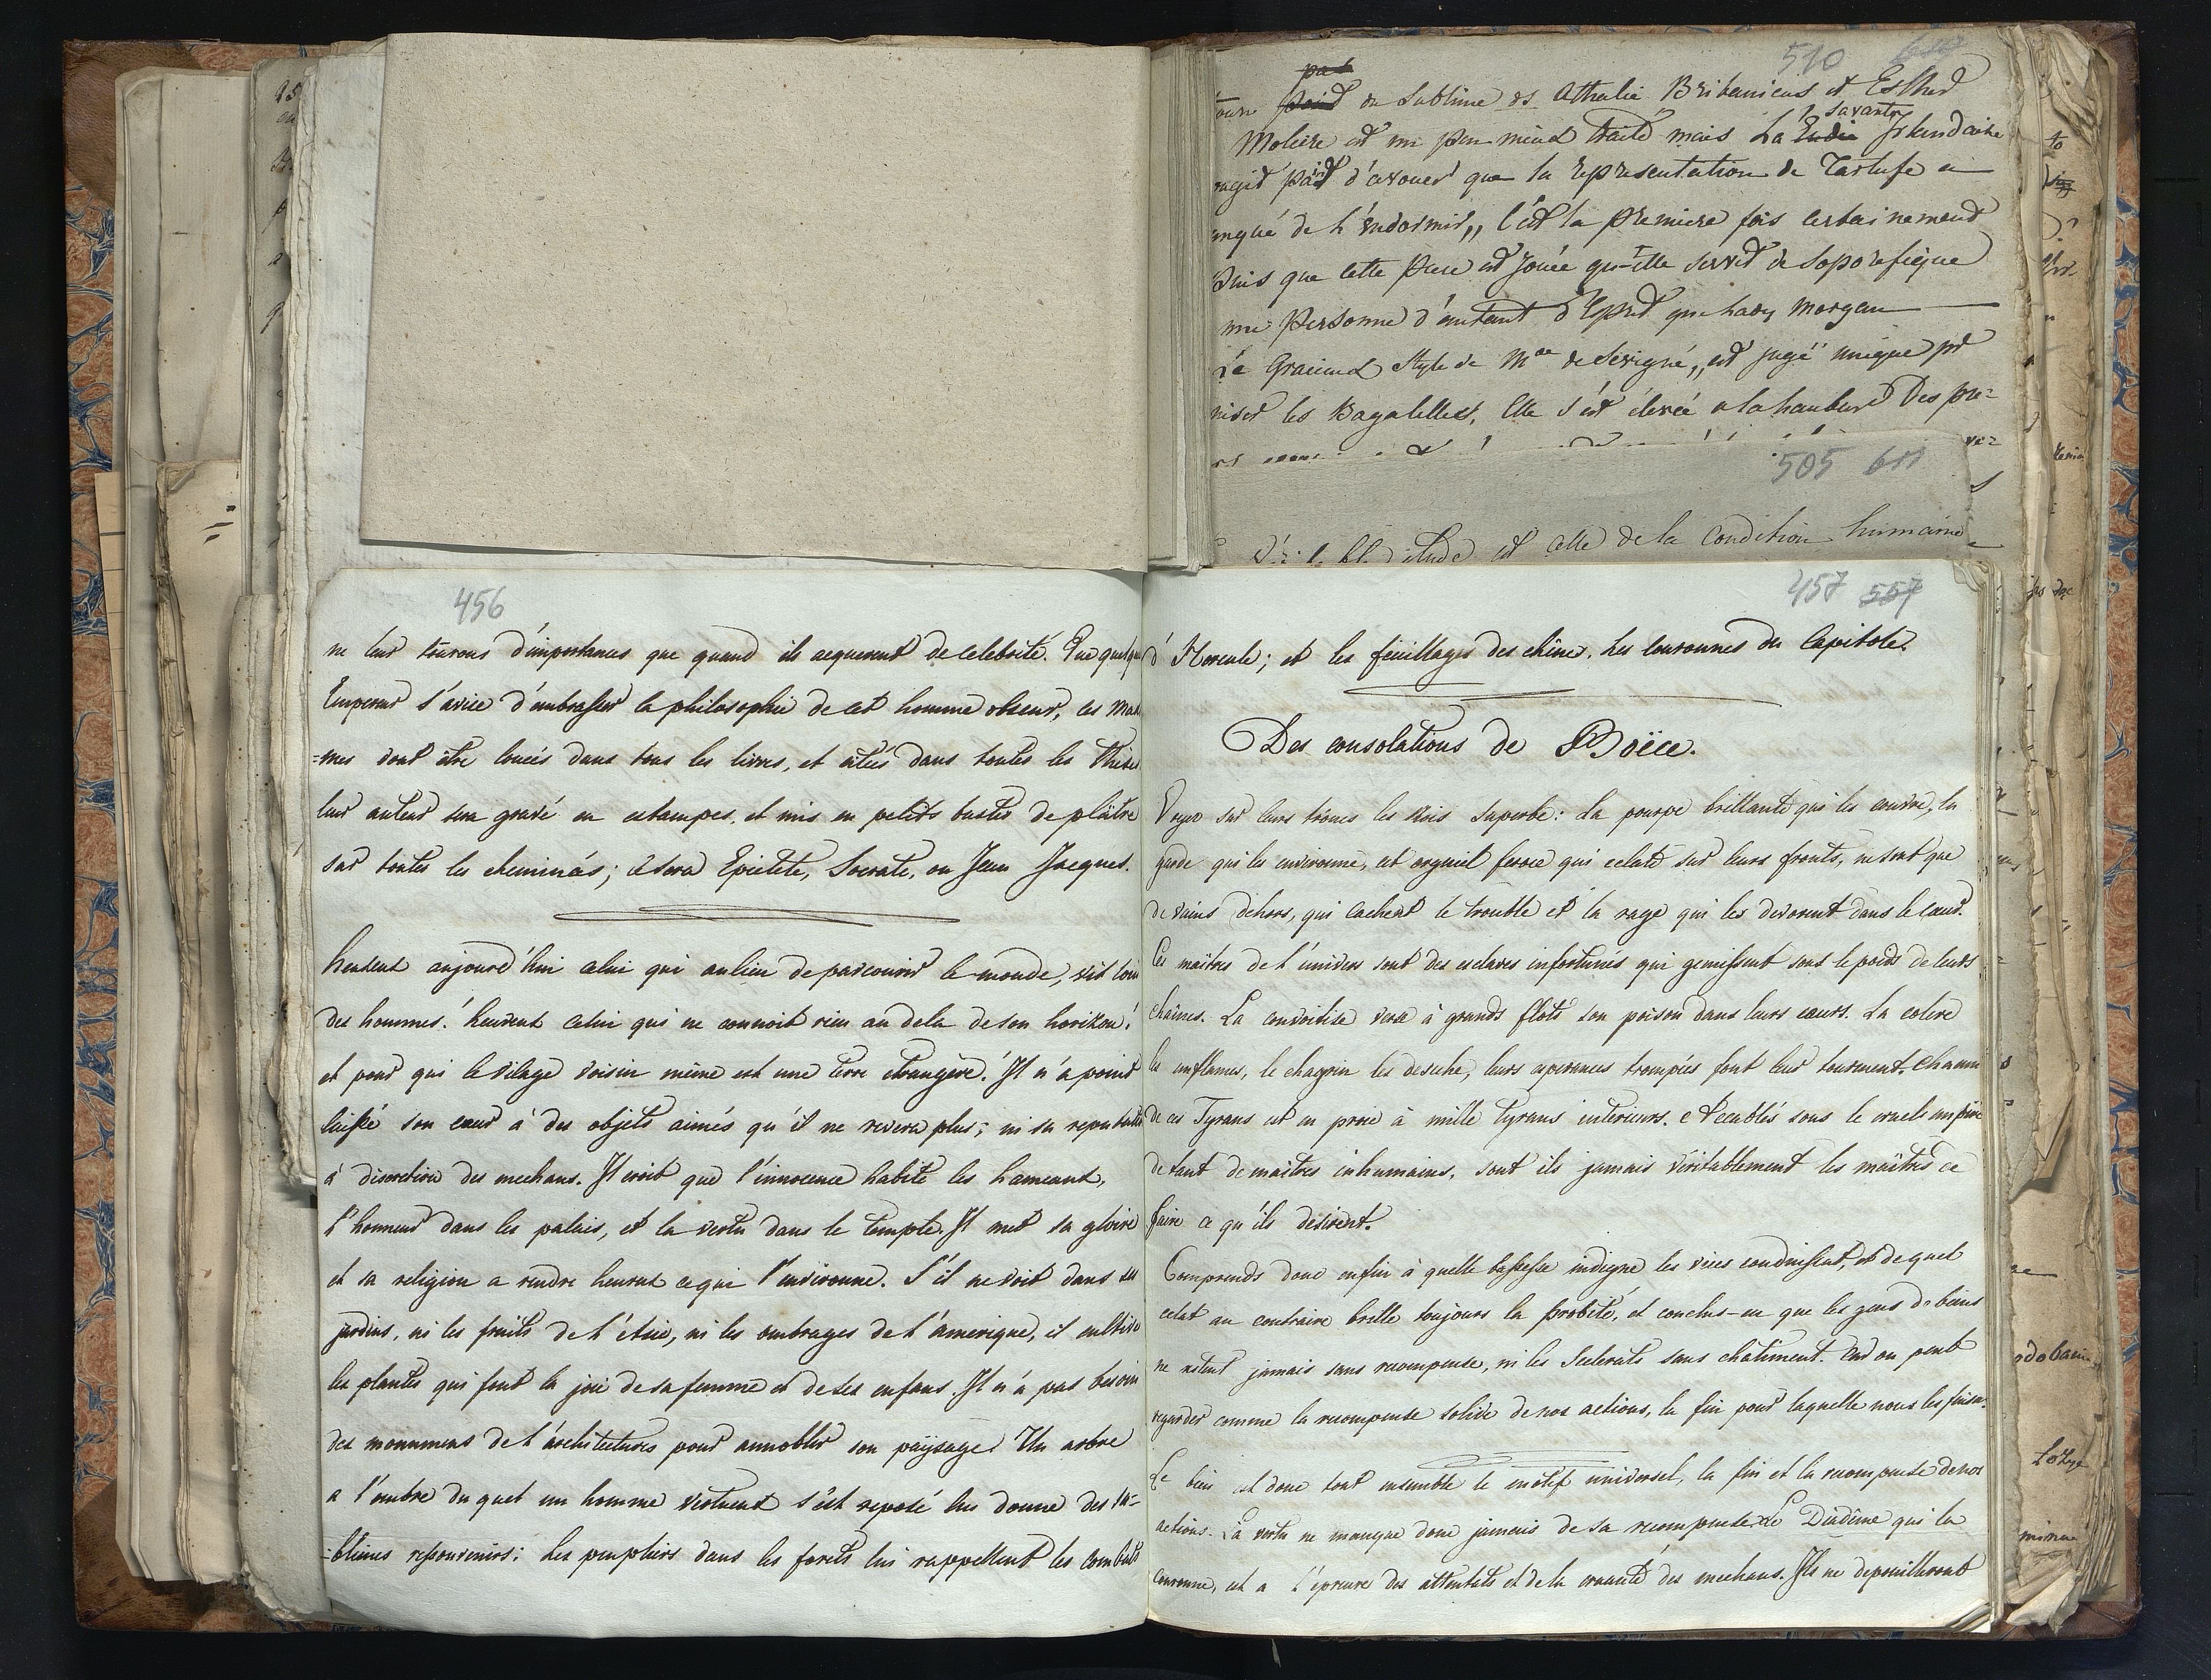 456
ne leur trouvons d'importances que quand ils acquerent de celebrité. Que quelque
Empereur s'avise d'embrasser la philosophie de cet homme obscur, ces maxi
=mes vont être louées dans tous les livres, et citées dans toutes les thèses
leur auteur sera gravé en estampes, et mis en petits bustes de plâtre
sur toutes les cheminées; ce sera Epictete, Socrate, ou Jean Jacques.
heureux aujourd'hui celui qui aulieu de parcourir le monde, vit loin
des hommes! heureux celui qui ne connoit rien au dela de son horizon!
et pour qui le vilage voisin même est une terre étrangère! Il n'a point
laissé son cœur à des objets aimés qu'il ne reverra plus; ni sa reputation
à discretion des mechans. Il croit que l'innocence habite les hameaux,
l'honneur dans les palais, et la vertu dans le temple. Il met sa gloire
et sa religion a rendre heureux ce qui l'environne. S'il ne voit dans ses
jardins, ni les fruits de l'Asie, ni les ombrages de l'amerique, il cultive
les plantes qui font la joie de sa femme et de ses enfans. Il n'a pas besoin
des monumens de l'architectures pour annoblir son paÿsage. Un arbre
a l'ombre du quel un homme vertueux s'est reposé lui donne des su-
-blimes ressouvenirs: Les peupliers dans les forets lui rappellent les combats
510
pas
du Sublime ds Athalie Britanicus et Esther
Moliere est un peu mieux traité mais La savante Irlandaise
d'avouer que la représentation de Tartufe a
anqué de l'endormir,, C'est la premiere fois certainement
puis que cette piece est jouée qu'elle servit de soporefique
une personne d'autant d'Esprit que Lady Morgan
Le Gracieux Style de Mde de Sévigné,, est jugé unique pr
niser les Bagatelles, Elle s'est élevée a la hauteur Des pre=
505 611
étude est celle de la condition humaine
457 557
d'Hercule; et les feuillages des chênes. Les couronnes du Capitole.
Des consolations de Boëce.
Voyez sur leurs trones les Rois superbe: La pourpe brillante qui les couvre, la
garde qui les environne, cet orgueil feroce qui eclate sur leurs fronts, ne sont que
de vains dehors, qui cachent le trouble et la rage qui les devorent dans le cœur.
Ces maitres de l'univers sont des esclaves infortunés qui gemissent sous le poids de leurs
chaînes. La convoitise verse à grands flots son poison dans leurs cœurs. La colere
les enflames, le chagrin les desseche, leurs esperances trompées font leur tourment. Chacun
de ces Tyrans est en proie à mille tyrans interieurs. Accablés sous le cruels empire
de tant de maîtres inhumains, sont ils jamais véritablement les maîtres de
faire ce qu'ils desirent.
Comprends donc enfin à quelle bassesse indigne les vices conduisent, et de quel
eclat au contraire brille toujours la probité, et conclus-en que les gens de biens
ne restent jamais sans recompense, ni les scelerats sans châtiment. Car on peut
regarder comme la recompense solide de nos actions, la fin pour laquelle nous les faisons.
Le bien est donc tout ensemble le motif universel, la fin et la recompense de nos
actions. La vertu ne manque donc jamais de sa recompense. Le Diadême qui la
couronne, est a l'epreuve des attentats et de la cruauté des mechans. Ils ne depouilleront